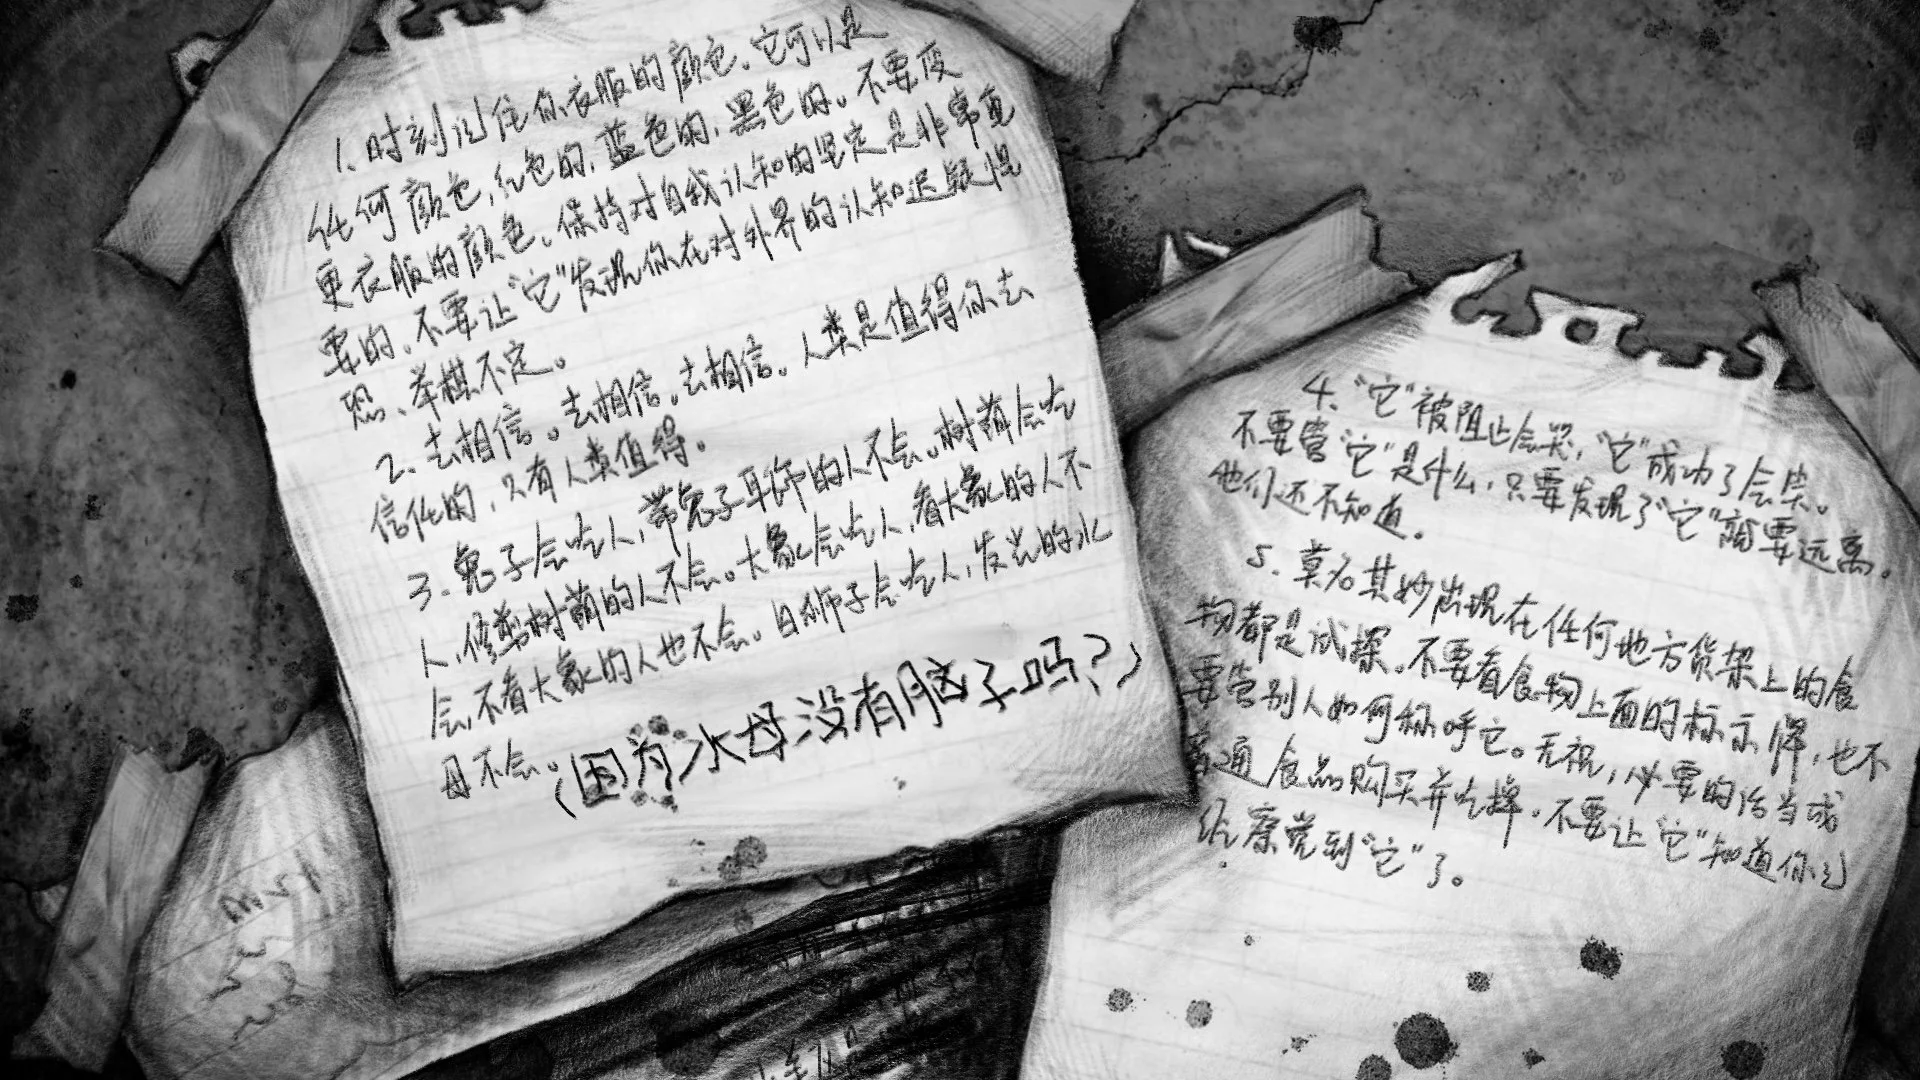 1、时刻记住你衣服的颜色、它可以是
任何颜色,红色的,蓝色的,黑色的。不要变
更衣服的颜色。保持对自我认知的坚定是非常重
要的。不要让“它”发现你在对外界的认知迟疑惶
恐、举棋不定。
2、去相信。去相信。去相信。人类是值得你去
信任的,只有人类值得。
3.兔子会吃人,带兔子耳饰的人不会。树荫会吃
人,修剪树荫的人不会。大象会吃人,看大象的人不
会,不看大象的人也不会。白狮子会吃人,发光的水
母不会。(因为水母没有脑子吗?)
4、“它”被阻止会哭,“它”成功了会笑。
不要管“它”是什么,只要发现了“它”就要远离。
他们还不知道。
5、莫名其妙出现在任何地方货架上的食
物都是试探。不要看食物上面的标示牌,也不
要告别人如何称呼它。无视,必要的话当成
普通食品购买并出掉。不要让“它”知道你已
经察觉到“它”了。